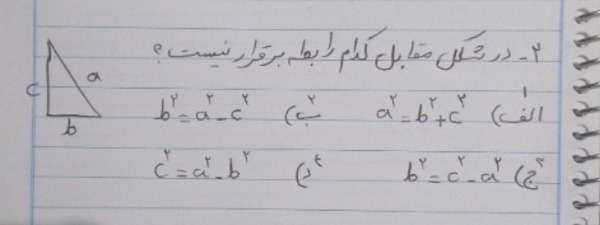 ۲- در شکل مقابل کدام رابطه برقرار نیست؟
الف) ۱ a^۲ = b^۲ + c^۲ ب) ۲ b^۲ = a^۲ - c^۲
ج) ۳ b^۲ = c^۲ - a^۲ د) ۴ c^۲ = a^۲ - b^۲
c a
b